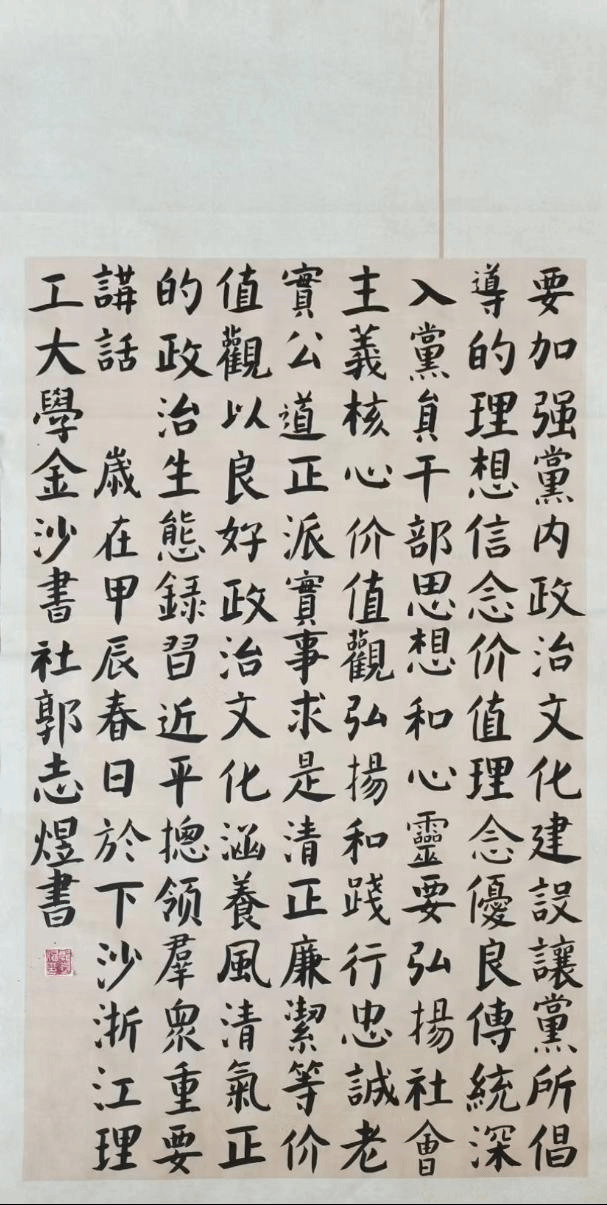 要加强黨内政治文化建設讓黨所倡
導的理想信念价值理念優良傳統深
入黨員干部思想和心靈要弘揚社會
主義核心价值觀弘揚和踐行忠誠老
實公道正派實事求是清正廉潔等价
值觀以良好政治文化涵養風清氣正
的政治生態録習近平摠领羣衆重要
講話 歳在甲辰春日於下沙浙江理
工大學金沙書社郭志煜書